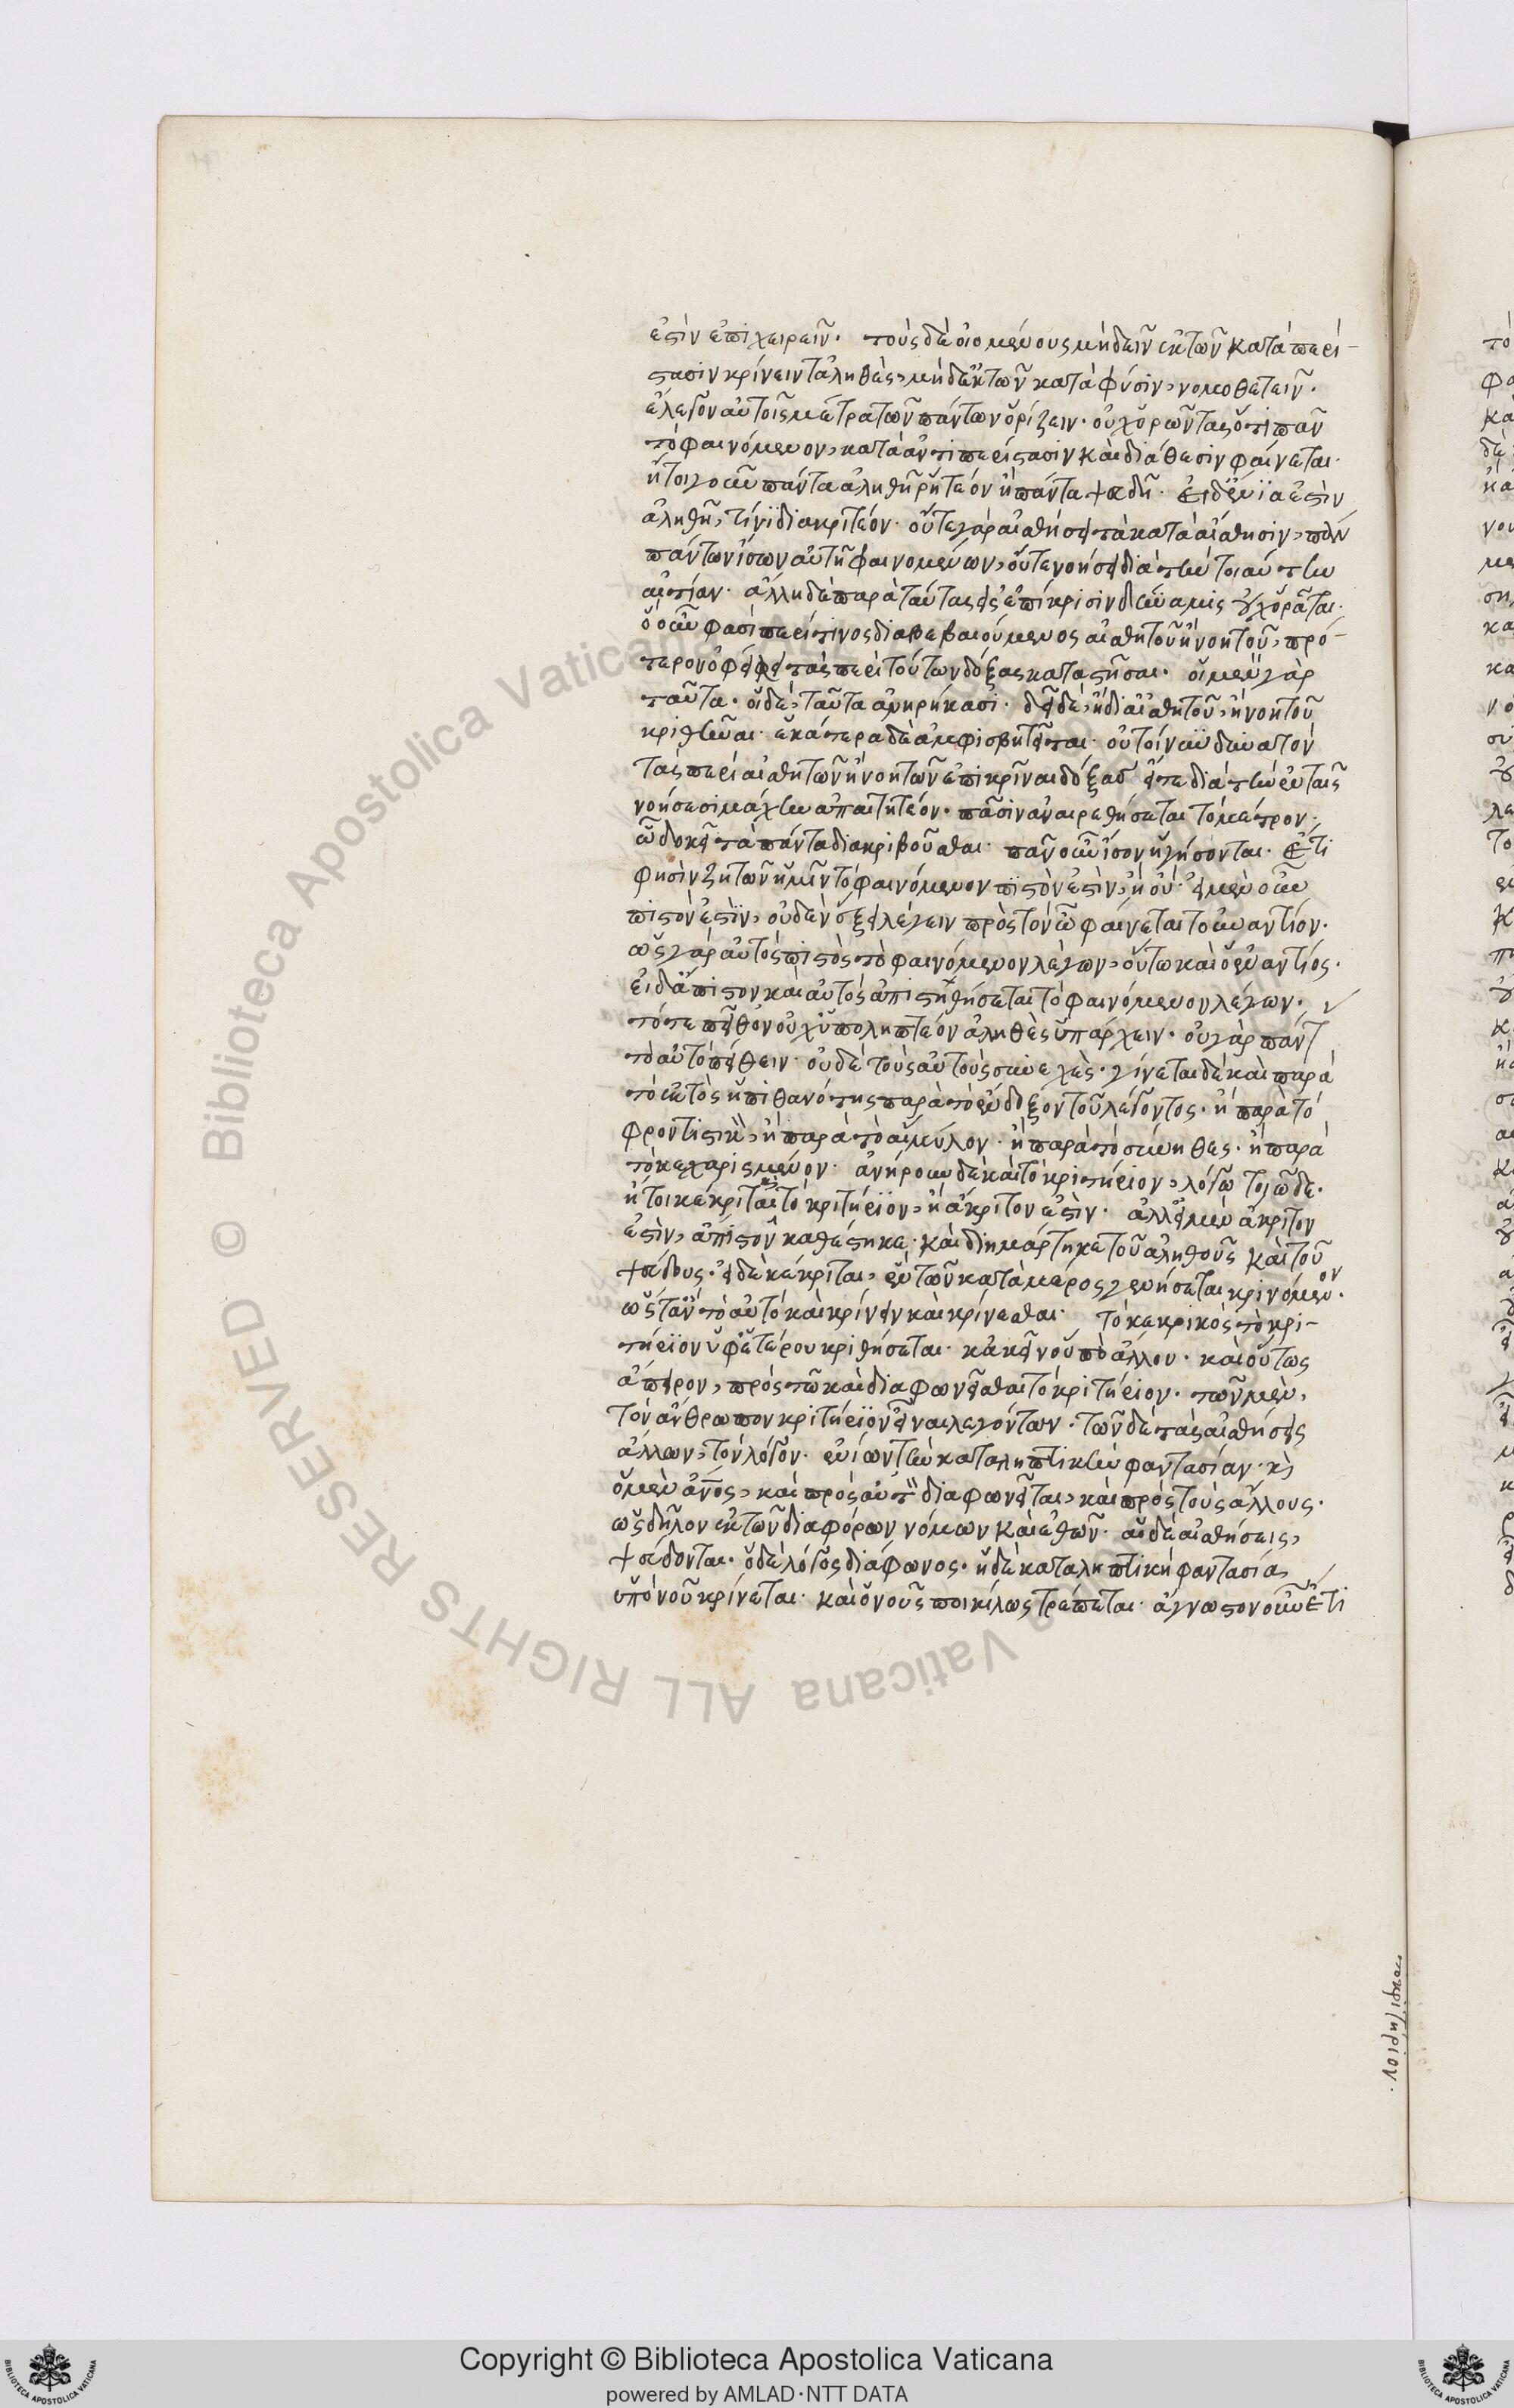 ἐστὶν ἐπιχειρεῖν. τοὺς δὲ οἰομένους μὴ δεῖν ἐκ τῶν κατὰ περί-
στασιν κρίνειν τἀληθὲς, μὴ δ' ἐκ τῶν κατὰ φύσιν, νομοθετεῖν.
ἔλεγον αὐτοῖς μέτρα τῶν πάντων ὁρίζειν. οὐχ ὁρῶντας ὅτι πᾶν
τὸ φαινόμενον, κατὰ ἀντιπερίστασιν καὶ διάθεσιν φαίνεται.
ἤτοι γοῦν πάντα ἀληθῆ ῥητέον ἢ πάντα ψευδῆ. εἰ δ' ἔνϊα ἐστὶν
ἀληθῆ, τίνϊ διακριτέον. οὔτε γὰρ αἰσθήσει τὰ κατὰ αἴσθησιν,
πάντων ἴσων αὐτῇ φαινομένων, οὔτε νοήσει διὰ τὴν τοιαύτην
αἰτίαν. ἄλλη δὲ παρὰ ταύτας εἰς ἐπίκρισιν δύναμις οὐχ ὁρᾶται.
ὁ οὖν φασὶ περί τινος διαβεβαιούμενος αἰσθητοῦ ἢ νοητοῦ, πρό-
τερον ὀφείλει τὰς περὶ τούτων δόξας καταστῆσαι. οἱ μὲν γὰρ
ταῦτα. οἱ δὲ, ταῦτα ἀνῃρήκασι. δεῖ δὲ, ἢ δι' αἰσθητοῦ, ἢ νοητοῦ
κριθῆναι. ἑκάτερα δὲ ἀμφισβητεῖται. οὐ τοίνυν δυνατὸν
τὰς περὶ αἰσθητῶν ἢ νοητῶν ἐπικρῖναι δόξας εἴτε διὰ τὴν ἐν ταῖς
νοήσεσι μάχην ἀπαιτητέον. πᾶσιν ἀναιρεθήσεται τὸ μέτρον.
ὧ δοκεῖ τὰ πάντα διακριβοῦσθαι. πᾶν οὖν ἴσον ἡγήσονται. Ἔτι
φησὶν ζητῶν ἡμῖν τὸ φαινόμενον πϊστὸν ἐστὶν, ἢ οὔ. εἰ μὲν οὖν
πιστὸν ἐστϊν, οὐδὲν ἕξει λέγειν πρὸς τὸν ὧ φαίνεται τοὐναντίον.
ὡς γὰρ αὐτὸς πιστὸς τὸ φαινόμενον λέγων, οὕτω καὶ ὁ ἐναντίος.
εἰ δ' ἄπιστον καὶ αὐτὸς ἀπιστηθήσεται τὸ φαινόμενον λέγων.
τότε πεῖθον οὐχ ὑποληπτέον ἀληθὲς ὑπάρχειν. οὐ γὰρ πάντ
τὸ αὐτὸ πείθειν. οὐδὲ τοὺς αὐτοὺς συνεχὲς. γίνεται δὲ καὶ παρὰ
τὸ ἐκτὸς ἡ πιθανότης παρὰ τὸ ἔνδοξον τοῦ λέγοντος. ἢ παρὰ τὸ
φροντιστικ, ἢ παρὰ τὸ αἱμύλον. ἢ παρὰ τὸ σύνηθες. ἢ παρὰ
τὸ κεχαρισμένον. ἀνῄρουν δὲ καὶ τὸ κριτήριον, λόγω τοιῶδε.
ἤτοι κέκριται τὸ κριτήριον, ἢ ἄκριτον ἐστὶν. ἀλλ' εἰ μὲν ἄκριτον
ἐστὶν, ἄπιστον καθέστηκε. καὶ διημάρτηκε τοῦ ἀληθοῦς καὶ τοῦ
ψεύδους. εἰ δὲ κέκριται, ἓν τῶν κατὰ μέρος γενήσεται κρινόμενον.
ὥστ' ἂν τὸ αὐτὸ καὶ κρίνειν καὶ κρίνεσθαι. τὸ κεκρικὸς τὸ κρι-
τήριον ὑφ' ἑτέρου κριθήσεται. κἀκεῖνο ὑπὸ ἄλλου. καὶ οὕτως
ἄπειρον, πρὸς τῶ καὶ διαφωνεῖσθαι τὸ κριτήριον. τῶν μὲν,
τὸν ἄνθρωπον κριτήριον εἶναι λεγόντων. τῶν δὲ τὰς αἰσθήσεις
ἄλλων, τὸν λόγον. ἐνίων τὴν καταληπτικὴν φαντασίαν. κὶ
ὁ μὲν ἄνος, καὶ πρὸς αὑτ διαφωνεῖται, καὶ πρὸς τοὺς ἄλλους.
ὡς δῆλον ἐκ τῶν διαφόρων νόμων καὶ ἐθῶν. αἱ δὲ αἰσθήσεις,
ψεύδονται. ὁ δὲ λόγος διάφωνος. ἡ δὲ καταληπτικὴ φαντασία,
ὑπὸ νοῦ κρίνεται. καὶ ὁ νοῦς ποικίλως τρέπεται. ἄγνωστον οὖν ἐτι
τὸ κριτήριον.
Copyright © Biblioteca Apostolica Vaticana
powered by AMLAD·NTT DATA